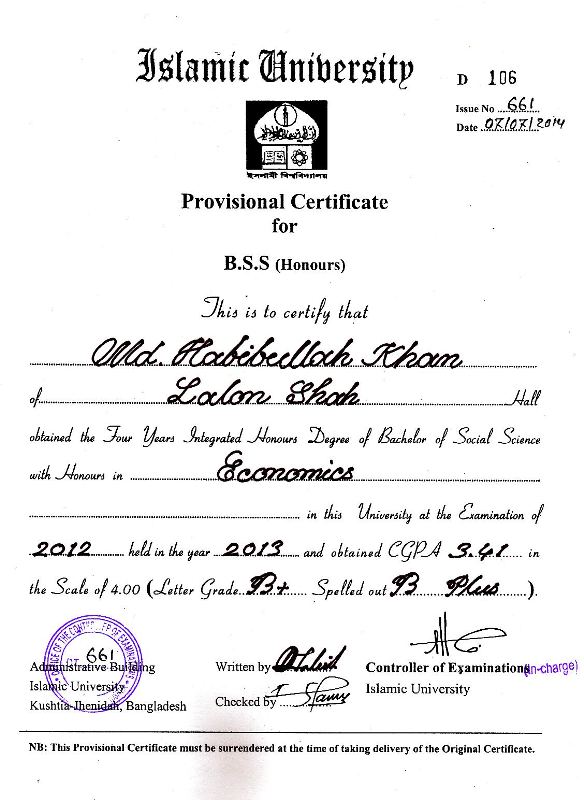 Islamic University
D 106
Issue No 661
Date 07/07/2014
ইসলামী বিশ্ববিদ্যালয়
Provisional Certificate
for
B.S.S (Honours)
This is to certify that
Md. Habibullah Khan
of Lalon Shah Hall
obtained the Four Years Integrated Honours Degree of Bachelor of Social Science
with Honours in Economics
in this University at the Examination of
2012 held in the year 2013 and obtained CGPA 3.41 in
the Scale of 4.00 (Letter Grade B+ Spelled out B Plus ).
661
Administrative Building
Islamic University
Kushtia-Jhenidah, Bangladesh
Written by
Checked by
Controller of Examinations (in-charge)
Islamic University
NB: This Provisional Certificate must be surrendered at the time of taking delivery of the Original Certificate.